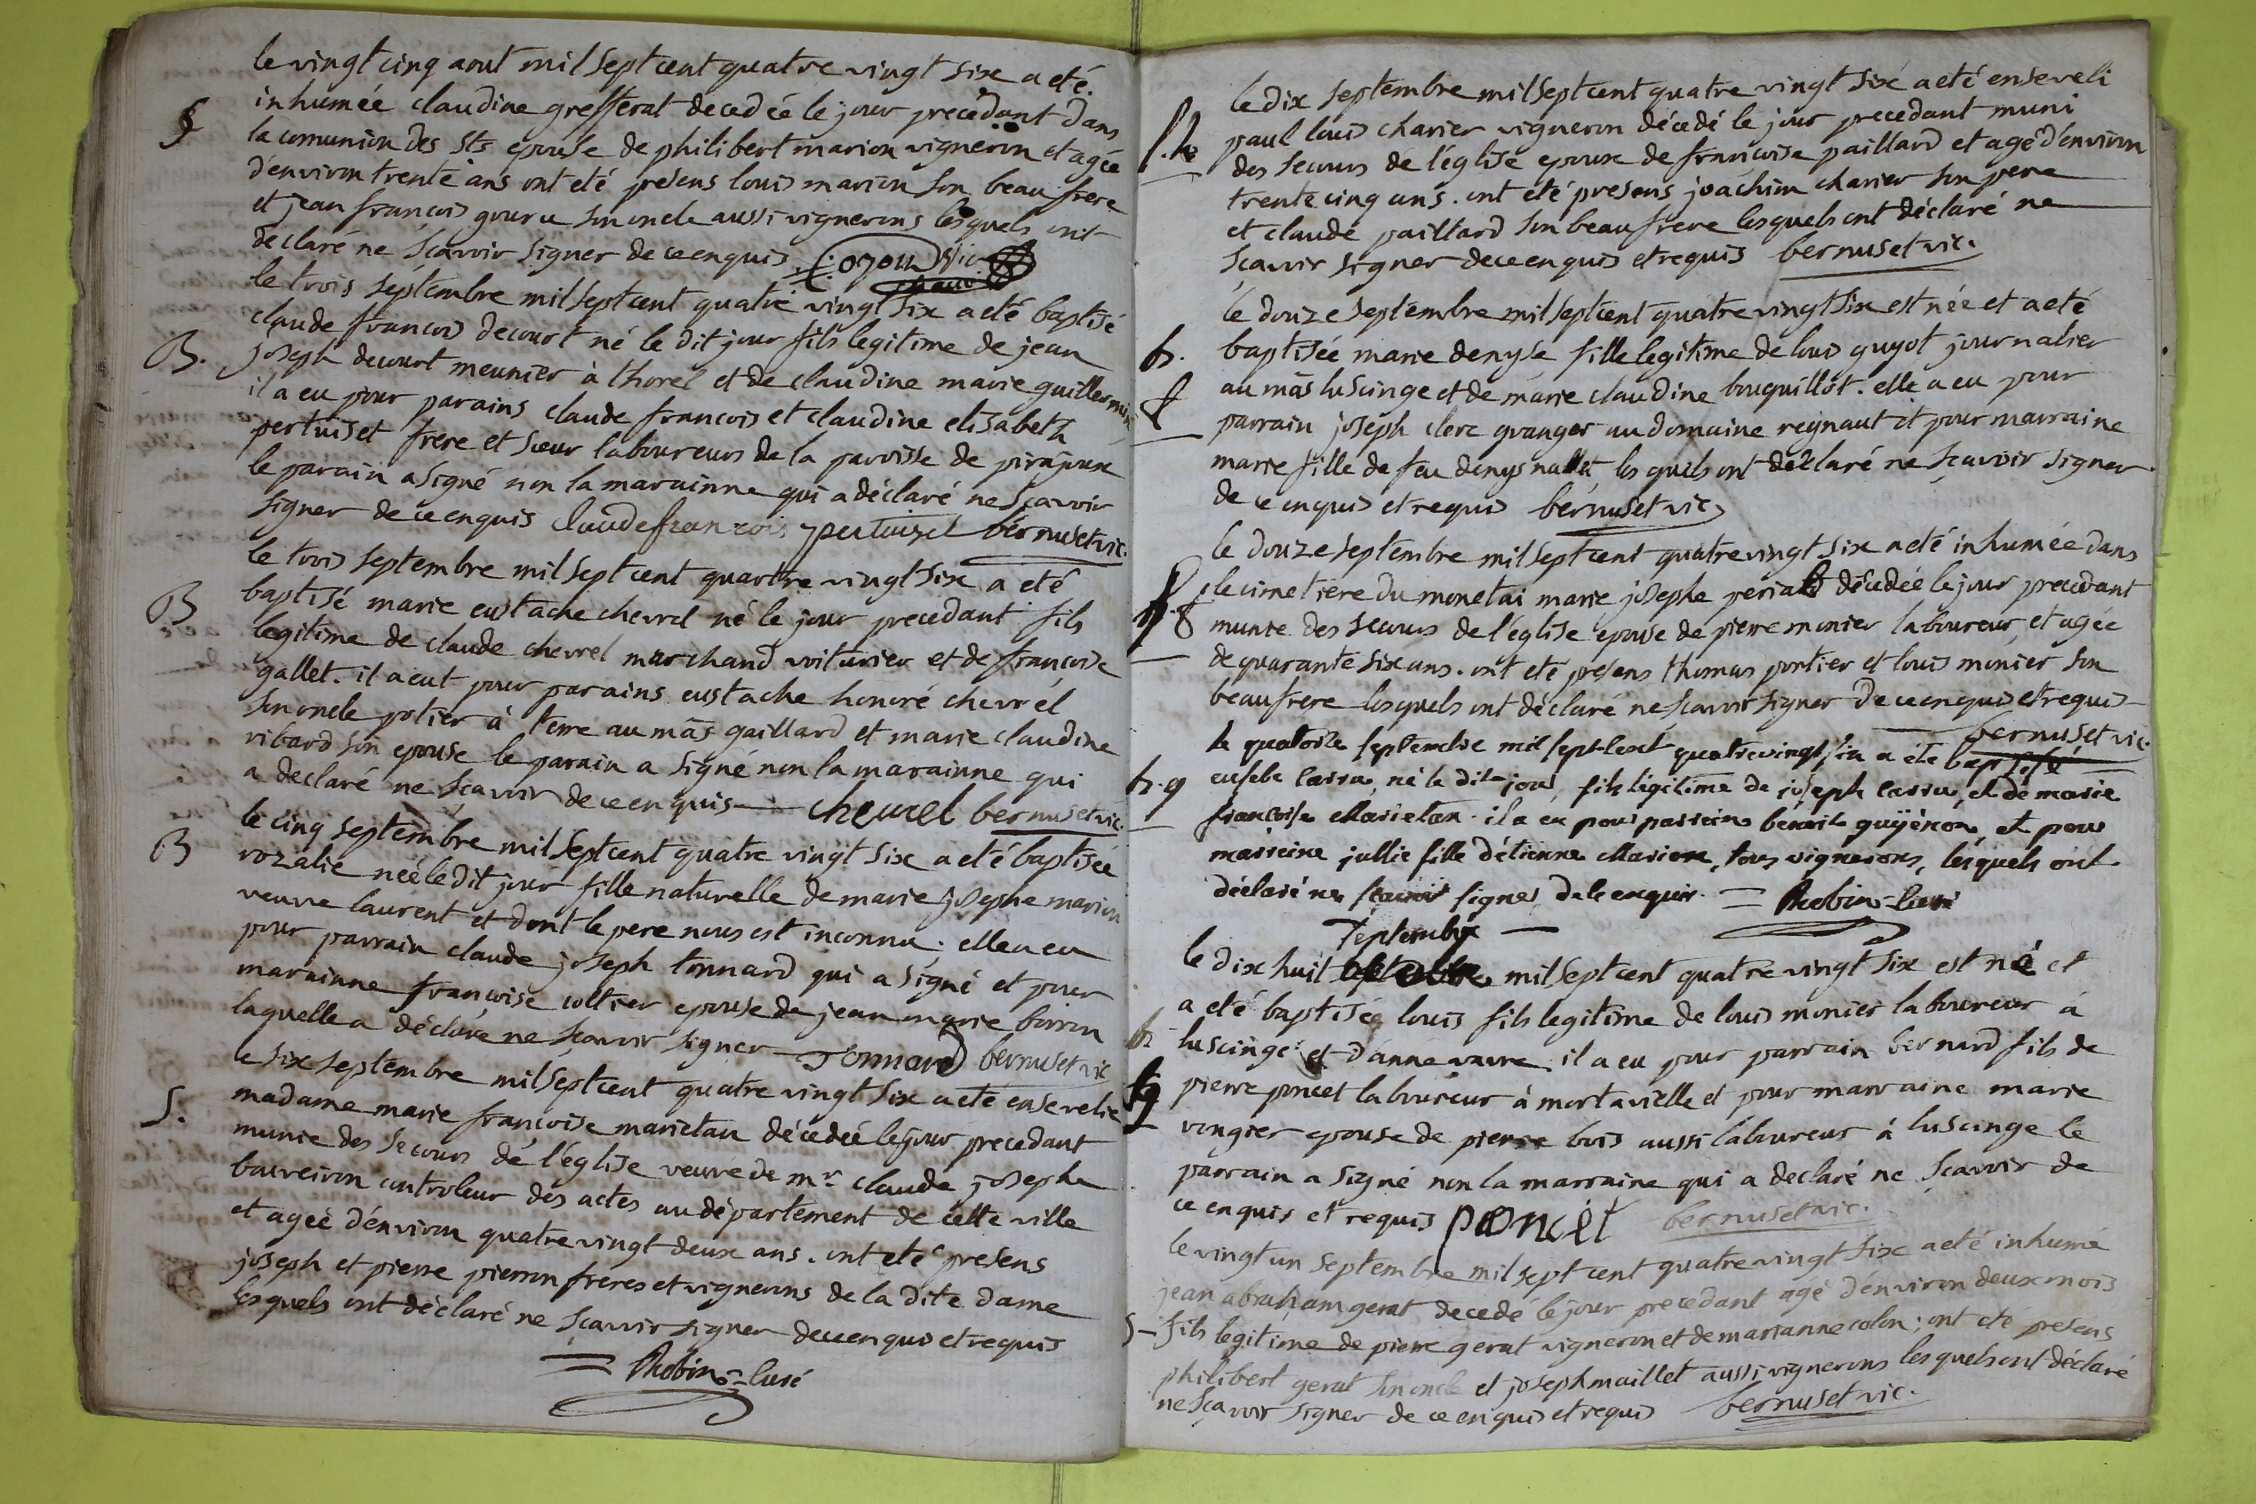 le vingt cinq aout mil sept cent quatre vingt six a eté.
§ inhumée claudine grefferat decedée le jour precedant dans
la comunion des Sts epouse de philibert marion vigneron et agée
d'environ trente ans ont eté presens louis marion son beau frere
et jean françois goura son oncle aussi vignerons lesquels ont
declaré ne scavoir signer de ce enquis
le trois septembre mil sept cent quatre vingt six a eté baptisé
claude francois decourt né le dit jour fils legitime de jean
B. joseph decourt meunier à thorel et de claudine marie
il a eu pour parains claude francois et claudine elisabeth
pertuiset frere et sœur laboureurs de la paroisse de pirajoux
le parain a signé non la marainne qui a déclaré ne scavoir
signer de ce enquis claude francois pertuizet bernuset vic.
le trois septembre mil sept cent quattre vingt six a eté
B baptisé marie eustache chevrel né le jour precedant fils
legitime de claude chevrel marchand voiturier et de françoise
gallet. il a eut pour parains eustache honoré chevrel
son oncle potier à terre au mas gaillard et marie claudine
vibard son epouse le parain a signé non la marainne qui
a declaré ne scavoir de ce enquis chevrel bernuset vic.
le cinq septembre mil sept cent quatre vingt six a eté baptisée
B rozalie née le dit jour fille naturelle de marie josephe marion
veuve laurent et dont le pere nous est inconnu. elle a eu
pour parrain claude joseph tonnard qui a signé et pour
marainne françoise coltier epouse de jean marie borron
laquelle a déclaré ne scavoir signer Tonnard bernuset vic
le six septembre mil sept cent quatre vingt six a eté ensevelie
madame marie françoise marietan décedée le jour precedant
S. munie des secours de l'église veuve de mr. claude josephe
bouveiron controleur des actes au département de cette ville
et agée d'environ quatre vingt deux ans. ont eté presens
joseph et pierre pierron freres et vignerons de la dite dame
lesquels ont déclaré ne scavoir signer de ce enquis et requis
= Robin = curé
le dix septembre mil sept cent quatre vingt six a eté enseveli
paul louis charier vigneron décedé le jour precedant muni
des secours de l'église epoux de francoise paillard et agé d'environ
trente cinq ans. ont eté presens joachim charier son pere
et claude paillard son beau frere lesquels ont déclaré ne
scavoir signer de ce enquis et requis bernuset vic.
le douze septembre mil sept cent quatre vingt six est née et a eté
b. baptisée marie denyse fille legitime de louis guyot journalier
au mas luscinge et de marie claudine bouquillot. elle a eu pour
parrain joseph clerc granger au domaine regnaut et pour marraine
marie fille de feu denys nallet, lesquels ont déclaré ne scavoir signer
de ce enquis et requis bernuset vic
le douze septembre mil sept cent quatre vingt six a eté inhumée dans
le cimetiere du monetai marie josephe décedée le jour precedant
munie des secours de l'église epouse de pierre monier laboureur et agée
de quarante six ans. ont eté presens thomas portier et louis monier son
beau frere lesquels ont déclaré ne scavoir signer de ce enquis et requis
bernuset vic.
le quatorze septembre mil sept cent quatrevingt six a ete baptisé
b. 9 eusebe carra, né le dit jour, fils legitime de joseph carra, et de marie
francoise marietan. il a eu pour parrain benoit guyénon, et pour
marreine jullie fille d'etienne marion, tous vignerons, lesquels ont
déclaré ne scavoir signer de ce enquis. = Robin = curé
Septembre
le dix huit mil sept cent quatre vingt six est né et
a eté baptisée louis fils legitime de louis monier laboureur à
b. luscinge et d'anne vavre il a eu pour parrain bernard fils de
pierre poncet laboureur à mortavielle et pour marraine marie
vongier epouse de pierre bois aussi laboureur à luscinge le
parrain a signé non la marraine qui a declaré ne scavoir de
ce enquis et requis poncet bernuset vic.
le vingt un septembre mil sept cent quatre vingt six a eté inhumé
jean abraham gerat decedé le jour precedant agé d'environ deux mois
S- fils legitime de pierre gerat vigneron et de marianne colon; ont eté presens
philibert gerat son oncle et joseph maillet aussi vignerons lesquels ont déclaré
ne scavoir signer de ce enquis et requis bernuset vic.